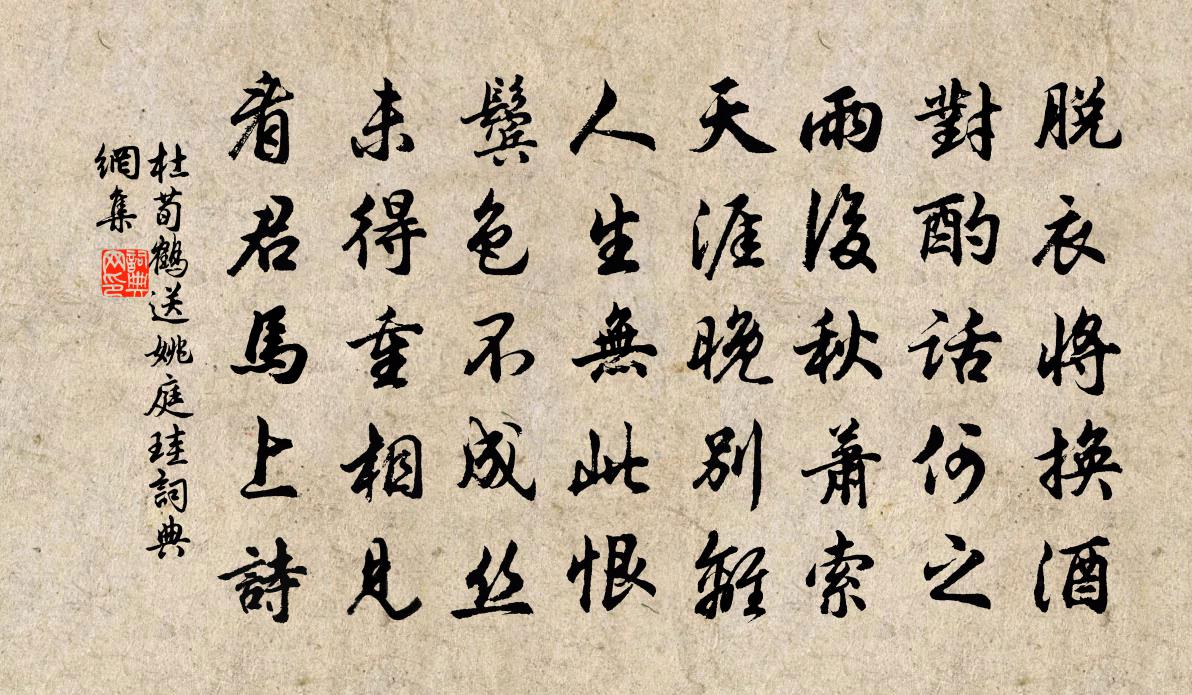 脱衣將換酒
對酌話何之
雨後秋蕭索
天涯晚別離
人生無此恨
鬢色不成丝
未得重相見
看君馬上詩
杜荀鶴送姚庭珪詞典
網集
詞典
网印